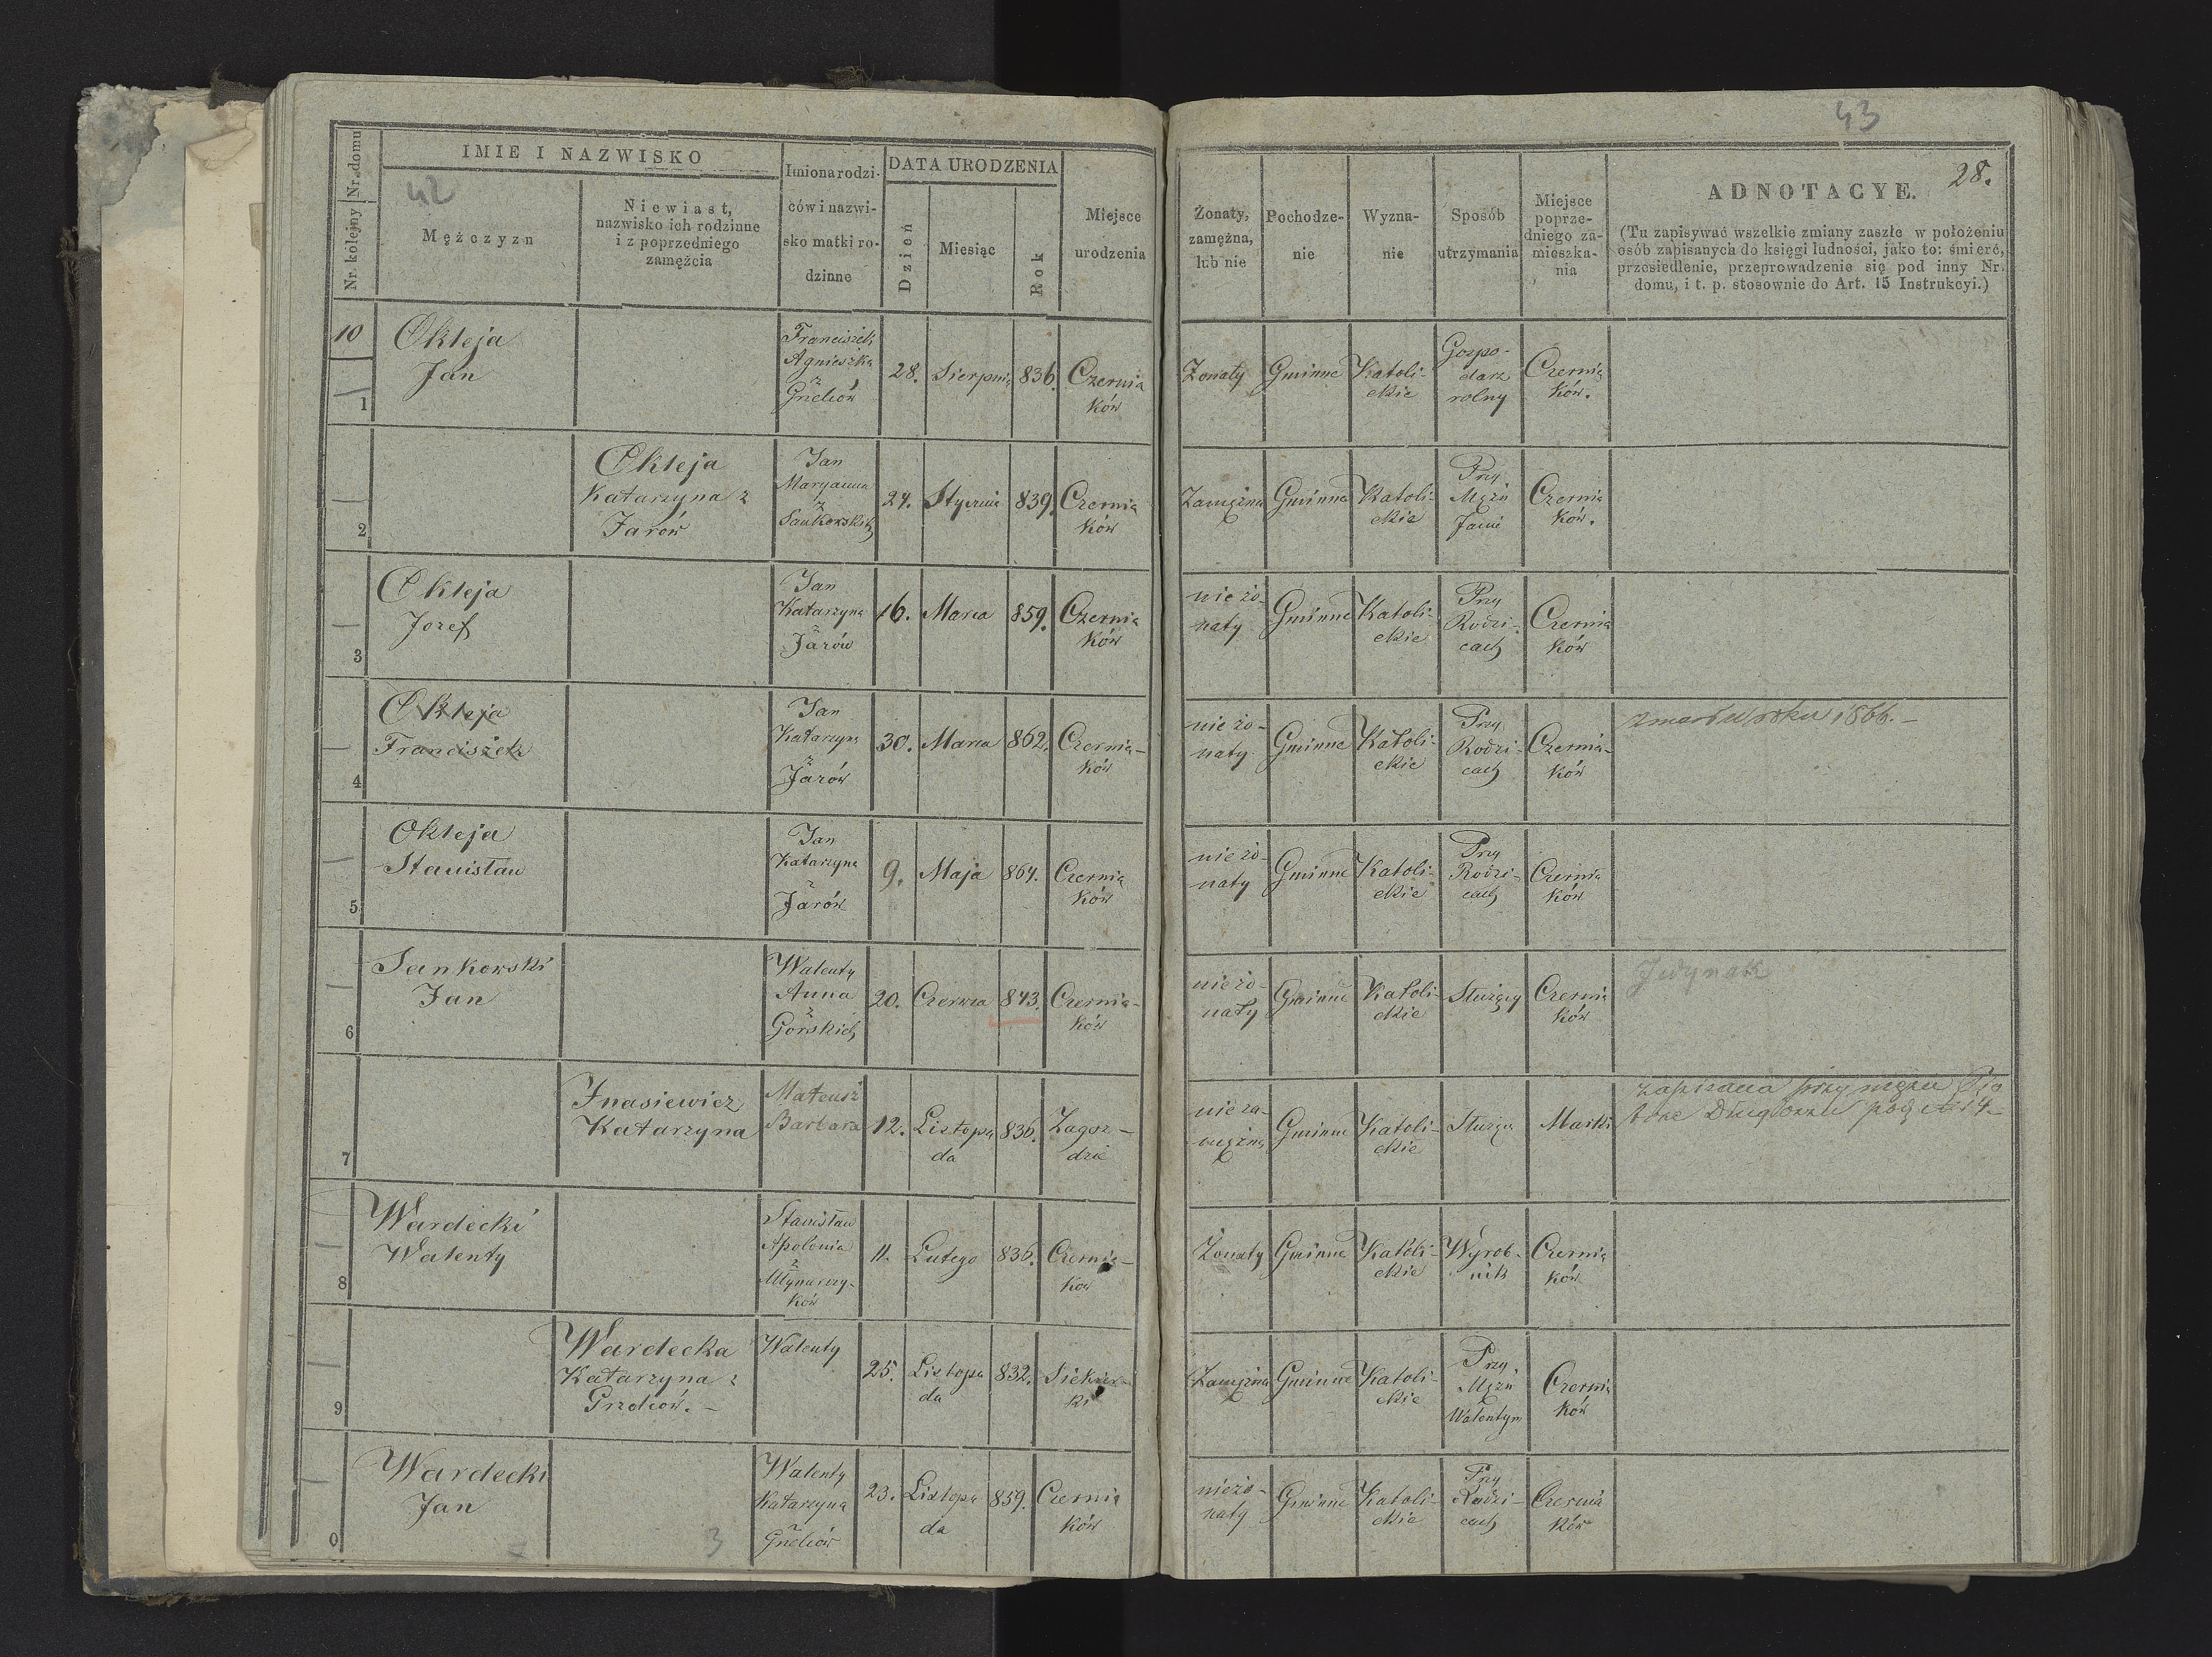 43
28.
42
Nr. kolejny
Nr. domu
IMIE I NAZWISKO
Mężczyzn
Niewiast,
nazwisko ich rodzinne
i z poprzedniego
zamężcia
Imiona rodzi-
ców i nazwi-
sko matki ro-
dzinne
DATA URODZENIA
Dzień
Miesiąc
Rok
Miejsce
urodzenia
Żonaty,
zamężna,
lub nie
Pochodze-
nie
Wyzna-
nie
Sposób
utrzymania
Miejsce
poprze-
dniego za-
mieszka-
nia
ADNOTACYE.
(Tu zapisywać wszelkie zmiany zaszłe w położeniu
osób zapisanych do księgi ludności, jako to: śmierć,
przesiedlenie, przeprowadzenie się pod inny Nr.
domu, i t. p. stosownie do Art. 15 Instrukcyi.)
10
1
Okleja
Jan
Franciszek
Agnieszka
z
28.
Sierpnia
836.
Czernia
ków
Żonaty
Gminne
Katoli-
ckie
Gospo-
darz
rolny
Czernia
ków.
2
Okleja
Katarzyna z
Jarów
Jan
Maryanna
z
Sankowskich
24.
Stycznia
839.
Czernia
ków
Zamężna
Gminne
Katoli-
ckie
Przy
Mężu
Janie
Czernia
ków.
3
Okleja
Jozef
Jan
Katarzyna
z
Jarów
16.
Marca
859.
Czernia
ków
nie żo-
naty
Gminne
Katoli-
ckie
Przy
Rodzi-
cach
Czernia
ków
4
Okleja
Franciszek
Jan
Katarzyna
z
Jarów
30.
Marca
862.
Czernia-
ków
nie żo-
naty
Gminne
Katoli-
ckie
Przy
Rodzi-
cach
Czernia-
ków
zmarł w roku 1866. -
5
Okleja
Stanisław
Jan
Katarzyna
z
Jarów
9.
Maja
864.
Czernia
ków
nie żo-
naty
Gminne
Katoli-
ckie
Przy
Rodzi-
cach
Czernia
ków
6
Sankowski
Jan
Walenty
Anna
z
Górskich
20.
Czerwca
843.
Czernia-
ków
nie żo-
naty
Gminne
Katoli-
ckie
Służący
Czernia
ków
Jedynak
7
Katarzyna
Mateusz
Barbara
12.
Listopa
da
836.
Zagoz-
dzie
nie za-
mężna
Gminne
Katoli-
ckie
Służąca
Marki
zapisana przy mężu Pio
trze Długoszu pod
8
Wardecki
Walenty
Stanisław
Apolonia
z
Młynarczy-
ków
11.
Lutego
836.
Czernia-
ków
Żonaty
Gminne
Katoli-
ckie
Wyrob-
nik
Czernia
ków
9
Wardecka
Katarzyna z
Walenty
25.
Listopa
da
832.
Siekier-
ki
Zamężna
Gminne
Katoli-
ckie
Przy
Mężu
Walentym
Czernia
ków
0
Wardecki
Jan
Walenty
Katarzyna
z
23.
Listopa
da
859.
Czernia
ków
nie żo-
naty
Gminne
Katoli-
ckie
Przy
Rodzi-
cach
Czernia
ków
3